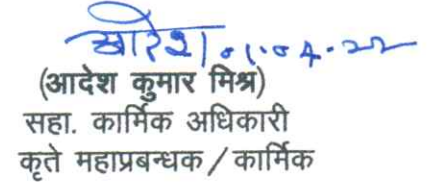 आदेश 01.04.22
(आदेश कुमार मिश्र)
सहा. कार्मिक अधिकारी
कृते महाप्रबन्धक / कार्मिक